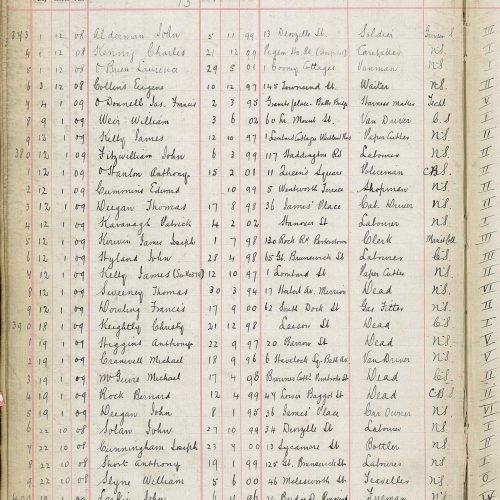 13
343 1 12 08 Alderman John 5 11 99 13 Denzille St. Soldier
4 1 12 08 Kenny Charles 21 12 97 Caretaker N.S.
5 1 12 08 O'Brien Laurence 29 5 01 Cottages Vanman N.S.
6 3 12 08 Collins Eugene 10 12 97 145 Townsend St. Waiter N.S. II
7 4 1 09 O'Donnell Jas. Francis 2 3 95 Grants place, Harness maker
8 9 1 09 Weir William 3 6 02 60 Lr Mount St. Van Driver C.S.
9 12 1 09 Kelly James 12 10 97 Cottages Paper Cutter N.S.
380 12 1 09 Fitzwilliam John 6 3 99 117 Haddington Rd Labourer N.S.
1 12 1 09 O'Hanlon Anthony 15 2 01 11 Queens Square Policeman
2 12 1 09 Cummins Edmd 10 99 5 Wentworth Terrace Shopman N.S.
3 12 1 09 Deegan Thomas 17 8 98 36 James' Place Cab Driver N.S.
4 12 1 09 Kavanagh Patrick 14 2 02 Hanover St Labourer N.S.
5 12 1 09 Kirwin James Joseph 1 7 98 120 Rock Rd Clerk
6 12 1 09 Hyland John 28 4 98 65 Gt. Brunswick St Labourer C.S.
7 12 1 09 Kelly James 12 10 97 1 Lombard St Paper Cutter N.S.
8 12 1 09 Sweeney Thomas 30 3 94 17 Merrion Dead N.S.
9 12 1 09 Dowling Francis 17 9 00 62 South Dock St Gas Fitter N.S.
390 18 1 09 Keightly Christy 21 12 98 Leeson St Dead C.S.
1 19 1 09 Higgins Anthony 22 9 97 20 Baron St Dead N.S.
2 19 1 09 Cranwell Michael 18 9 96 6 Havelock Sq. Bath Av. Van Driver N.S.
3 19 1 09 McGuire Michael 17 4 98 Cott. Pembroke St Dead C.S.
4 19 1 09 Rock Bernard 12 4 99 47 Lower Baggot St Dead C.B.S
5 19 1 09 Deegan John 8 1 95 36 James' Place Car Owner N.S.
6 22 10 08 Nolan John 27 10 99 34 Denzille St Labourer N.S.
7 22 10 08 Cunningham Joseph 23 4 00 13 Sycamore St Bottler N.S.
8 22 10 08 Short Anthony 19 1 99 125 Gt. Brunswick St Labourer N.S.
9 22 10 08 Slyne William 5 6 00 46 Molesworth St Traveller N.S.
400 John 96 Fireman